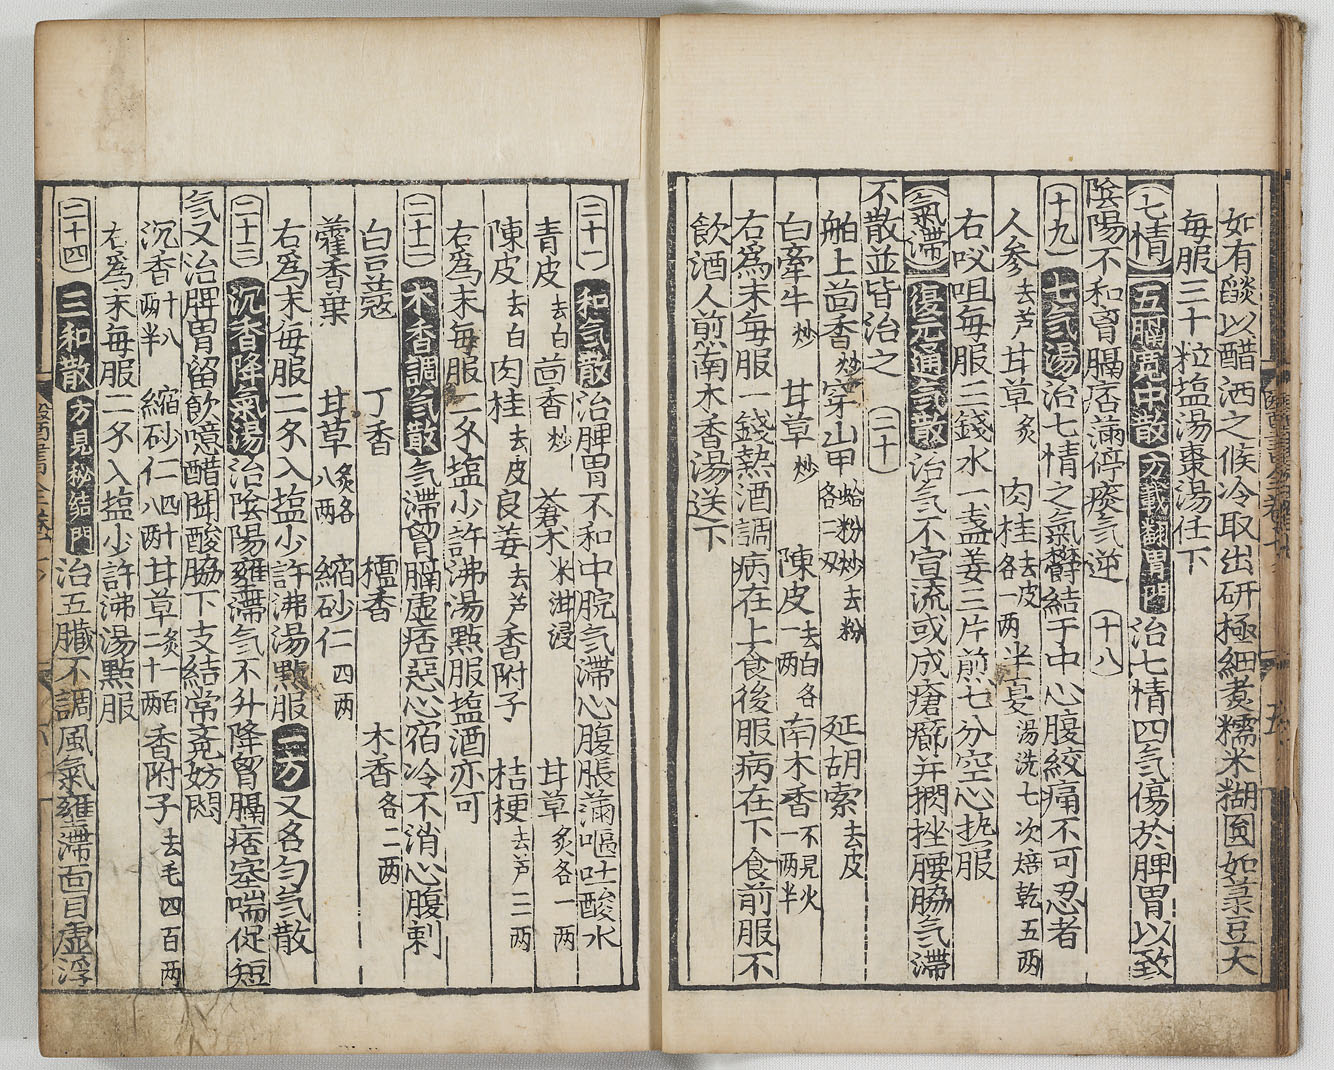 如有𦦨以醋洒之候冷取出研極細煮糯米糊圎如菉豆大
每服三十粒塩湯棗湯任下
七情 五膈寛中散 方載翻胃門 治七情四气傷於脾胃以致
陰陽不和胷膈痞滿停痰气逆 十八
十九 七气湯 治七情之氣欝結于中心腹絞痛不可忍者
人參去芦 甘草炙 肉桂去皮各一两 半夏湯洗七次焙乾五两
右㕮咀每服三錢水一盞姜三片煎七分空心热服
氣滯 復元通气散 治气不宣流或成瘡癤并閃挫腰脇气滯
不散並皆治之 二十
舶上茴香炒 穿山甲蛤粉炒去粉各二刄 延胡索去皮
白牽牛炒 甘草炒 陳皮去白各一两 南木香不見火一两半
右為末每服一錢熱酒調病在上食後服病在下食前服不
飲酒人煎南木香湯送下
二十一 和气散 治脾胃不和中脘气滯心腹脹滿嘔吐酸水
青皮去白 茴香炒 蒼术米泔浸 甘草炙各一两
陳皮去白 肉桂去皮 良姜去芦 香附子 桔梗去芦三两
右為末每服二分塩少許沸湯點服塩酒亦可
二十二 木香調气散 气滯胷膈虚痞惡心宿冷不消心腹刺
白豆蔻 丁香 檀香 木香各二两
藿香葉 甘草炙各八两 縮砂仁四两
右為末每服二分入塩少許沸湯點服 一方 又名匀气散
二十三 沉香降氣湯 治陰陽壅滯气不升降胷膈痞塞喘促短
气又治脾胃留飲噫醋聞酸脇下支結常覔妨悶
沉香十八两半 縮砂仁四十八两 甘草炙一百二十两 香附子去毛四百两
右為末每服二分入塩少許沸湯點服
二十四 三和散 方見秘結門 治五臓不調風氣壅滯面目虚浮